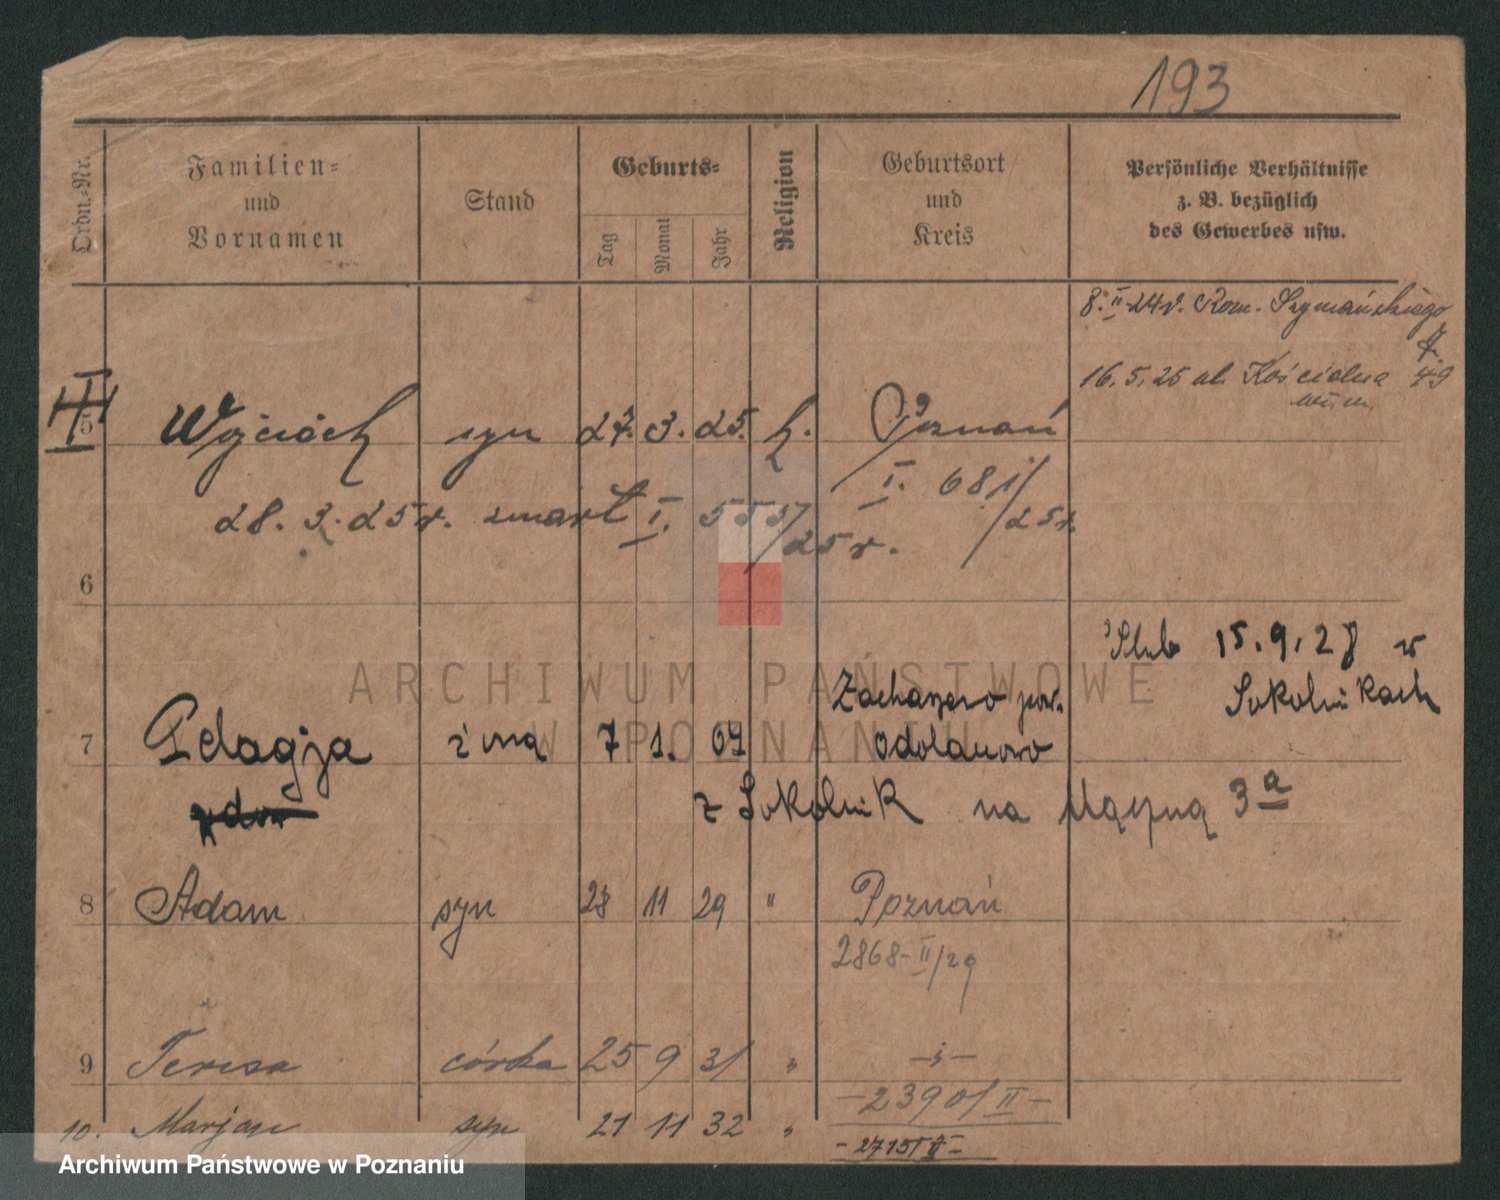 193
Ordn.-Nr.
Familien-
und
Vornamen
Stand
Geburts-
Tag
Monat
Jahr
Religion
Geburtsort
und
Kreis
Persönliche Verhältnisse
z. B. bezüglich
des Gewerbes usw.
8. II 24 r. Rom. Szymańskiego
7.
16. 5. 25 ul. Kościelna 49
5 Wojciech syn 27. 3. 25. k. Poznań
I. 681/25 r.
28. 3. 25 r. zmarł I. 555/25 r.
6
Ślub 15.9.28 w
Sokolnikach
Zacharzew pow.
7 Pelagja żona 7 1. 09 Odolanowo
z Sokolnik na Mączną 3a
8 Adam syn 28 11 29 " Poznań
2868-II/29
9 Teresa córka 25 9 31 " -"-
-2390/II-
10. Marjan syn 21 11 32 "
-2715/II-
ARCHIWUM PAŃSTWOWE
W POZNANIU
Archiwum Państwowe w Poznaniu